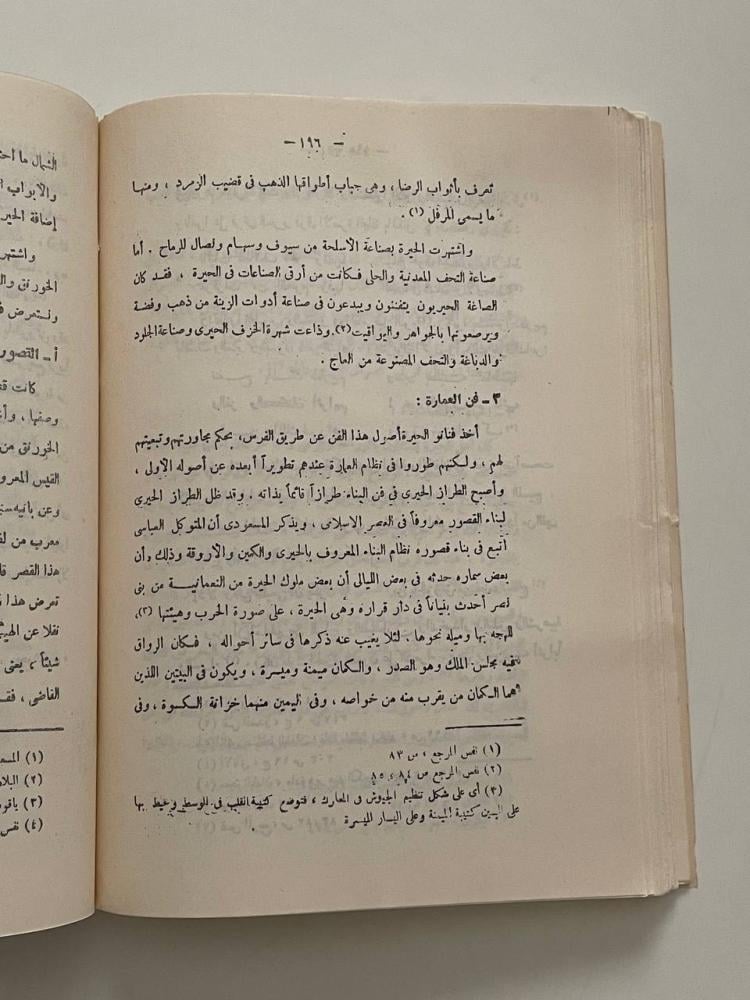 الشمال ما اح
والأبواب ا
إضافة الحير
واشتهر
الخورنق وال
ونستعرض ف
أ - القصور
كانت ق
وصفها ، وأ
الخورنق من
القيس المعرو
وعن بانيه سن
معرب من لف
هذا القصر قا
تعرض هذا
نقلا عن الهيث
شيئاً ، يعنى
القاضى ، فقـ
(١) المسع
(٢) البلا
(٣) ياقو
(٤) نفس
— ١٩٦ —
تعرف بأثواب الرضا ، وهى جباب أطواقها الذهب فى قضيب الزمرد ، ومنها
ما يسمى المرفل (١) .
واشتهرت الحيرة بصناعة الأسلحة من سيوف وسهام ونصال للرماح . أما
صناعة التحف المعدنية والحلى فكانت من أرقى الصناعات فى الحيرة ، فقد كان
الصاغة الحيريون يتفننون ويبدعون فى صناعة أدوات الزينة من ذهب وفضة
ويرصعونها بالجواهر واليواقيت(٢). وذاعت شهرة الخزف الحيرى وصناعة الجلود
والدباغة والتحف المصنوعة من العاج .
٣ - فن العمارة :
أخذ فنانو الحيرة أصول هذا الفن عن طريق الفرس، بحكم مجاورتهم وتبعيتهم
لهم ، ولكنهم طوروا فى نظام العمارة عندهم تطويراً أبعده عن أصوله الأولى ،
وأصبح الطراز الحيرى فى فن البناء طرازاً قائماً بذاته . وقد ظل الطراز الحيرى
لبناء القصور معروفاً فى العصر الإسلامى ، ويذكر المسعودى أن المتوكل العباسى
أتبع فى بناء قصوره نظام البناء المعروف بالحيرى والكمين والأروقة وذلك، أن
بعض سماره حدثه فى بعض الليالى أن بعض ملوك الحيرة من النعمانية من بنى
نصر أحدث بنياناً فى دار قراره وهى الحيرة ، على صورة الحرب وهيئتها (٣)،
للهجه بها وميله نحوها . لئلا يغيب عنه ذكرها فى سائر أحواله ، فكان الرواق
فيه مجلس الملك وهو الصدر ، والكمان ميمنة وميسرة ، ويكون فى البيتين اللذين
هما الكمان من يقرب منه من خواصه ، وفى اليمين منهما خزانة الكسوة ، وفى
(١) نفس المرجع ، ص ٨٣
(٢) نفس المرجع ص ٨٤ ، ٨٥
(٣) أى على شكل تنظيم الجيوش و المعارك ، فتوضع كتيبة القلب فى الوسط ويحيط بها
على اليمين كتيبة الميمنة وعلى اليسار الميسرة